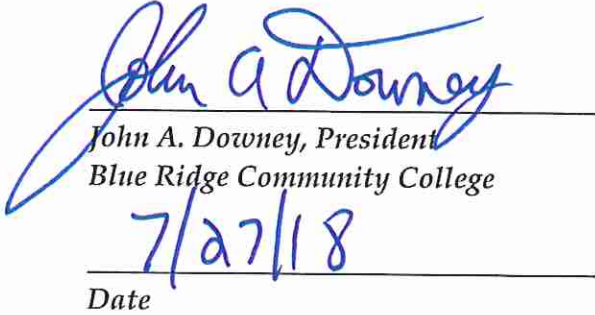 John A Downey
John A. Downey, President
Blue Ridge Community College
7/27/18
Date